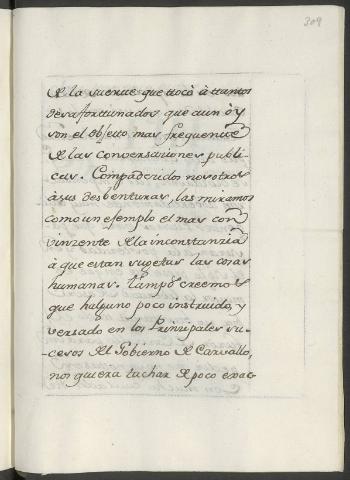 309
de la suerte que tocò à ttantos
desafortunados que aun òy
son el Objetto mas frequente
de las conversaciones publi-
cas. Compadecidos nosotros
à sus desbenturas, las miramos
como un efemplo el mas con
vinzente de la inconstanzia
à que estan sugetas las cosas
humanas. tampº creemos
que halguno poco instruido, y
versado en los Prinzipales su-
-cesos del Gobierno de Carvallo,
nos quiera tachar de poco exac-